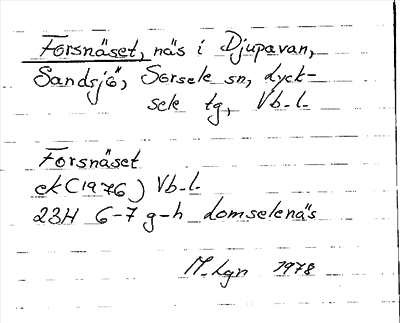 Forsnäset, näs i Djupavan,
Sandsjö, Sorsele sn, Lyck-
sele tg, Vb.l.
Forsnäset
ek (1976) Vb.l.
23H 6-7 g-h domselenäs
M. Lgn 1978